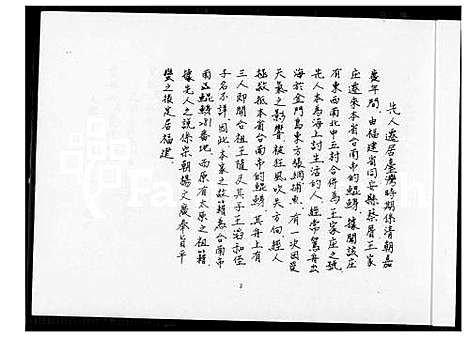 先人遷居臺灣時期係清朝嘉
慶年間，由福建省同安縣蔡厝王家
庄遷來本省台南市的鯤鯓，據聞該庄
有東西南北中五村合併為王家庄之號，
先人本為海上討生活的人，經常駕舟出
海於金門島東方張網捕魚，有一次因受
天氣之影響被狂風吹失方向，經人
拯救抵本省台南市的鯤鯓，其舟上有
三人即開台祖王隨及其子王滔和侄
子名不詳，因此本家之故籍為台南市
南區鯤鯓 番地，而原有太原之祖籍，
據先人之說係宋朝楊文廣奉旨平
蠻之後定居福建。
2